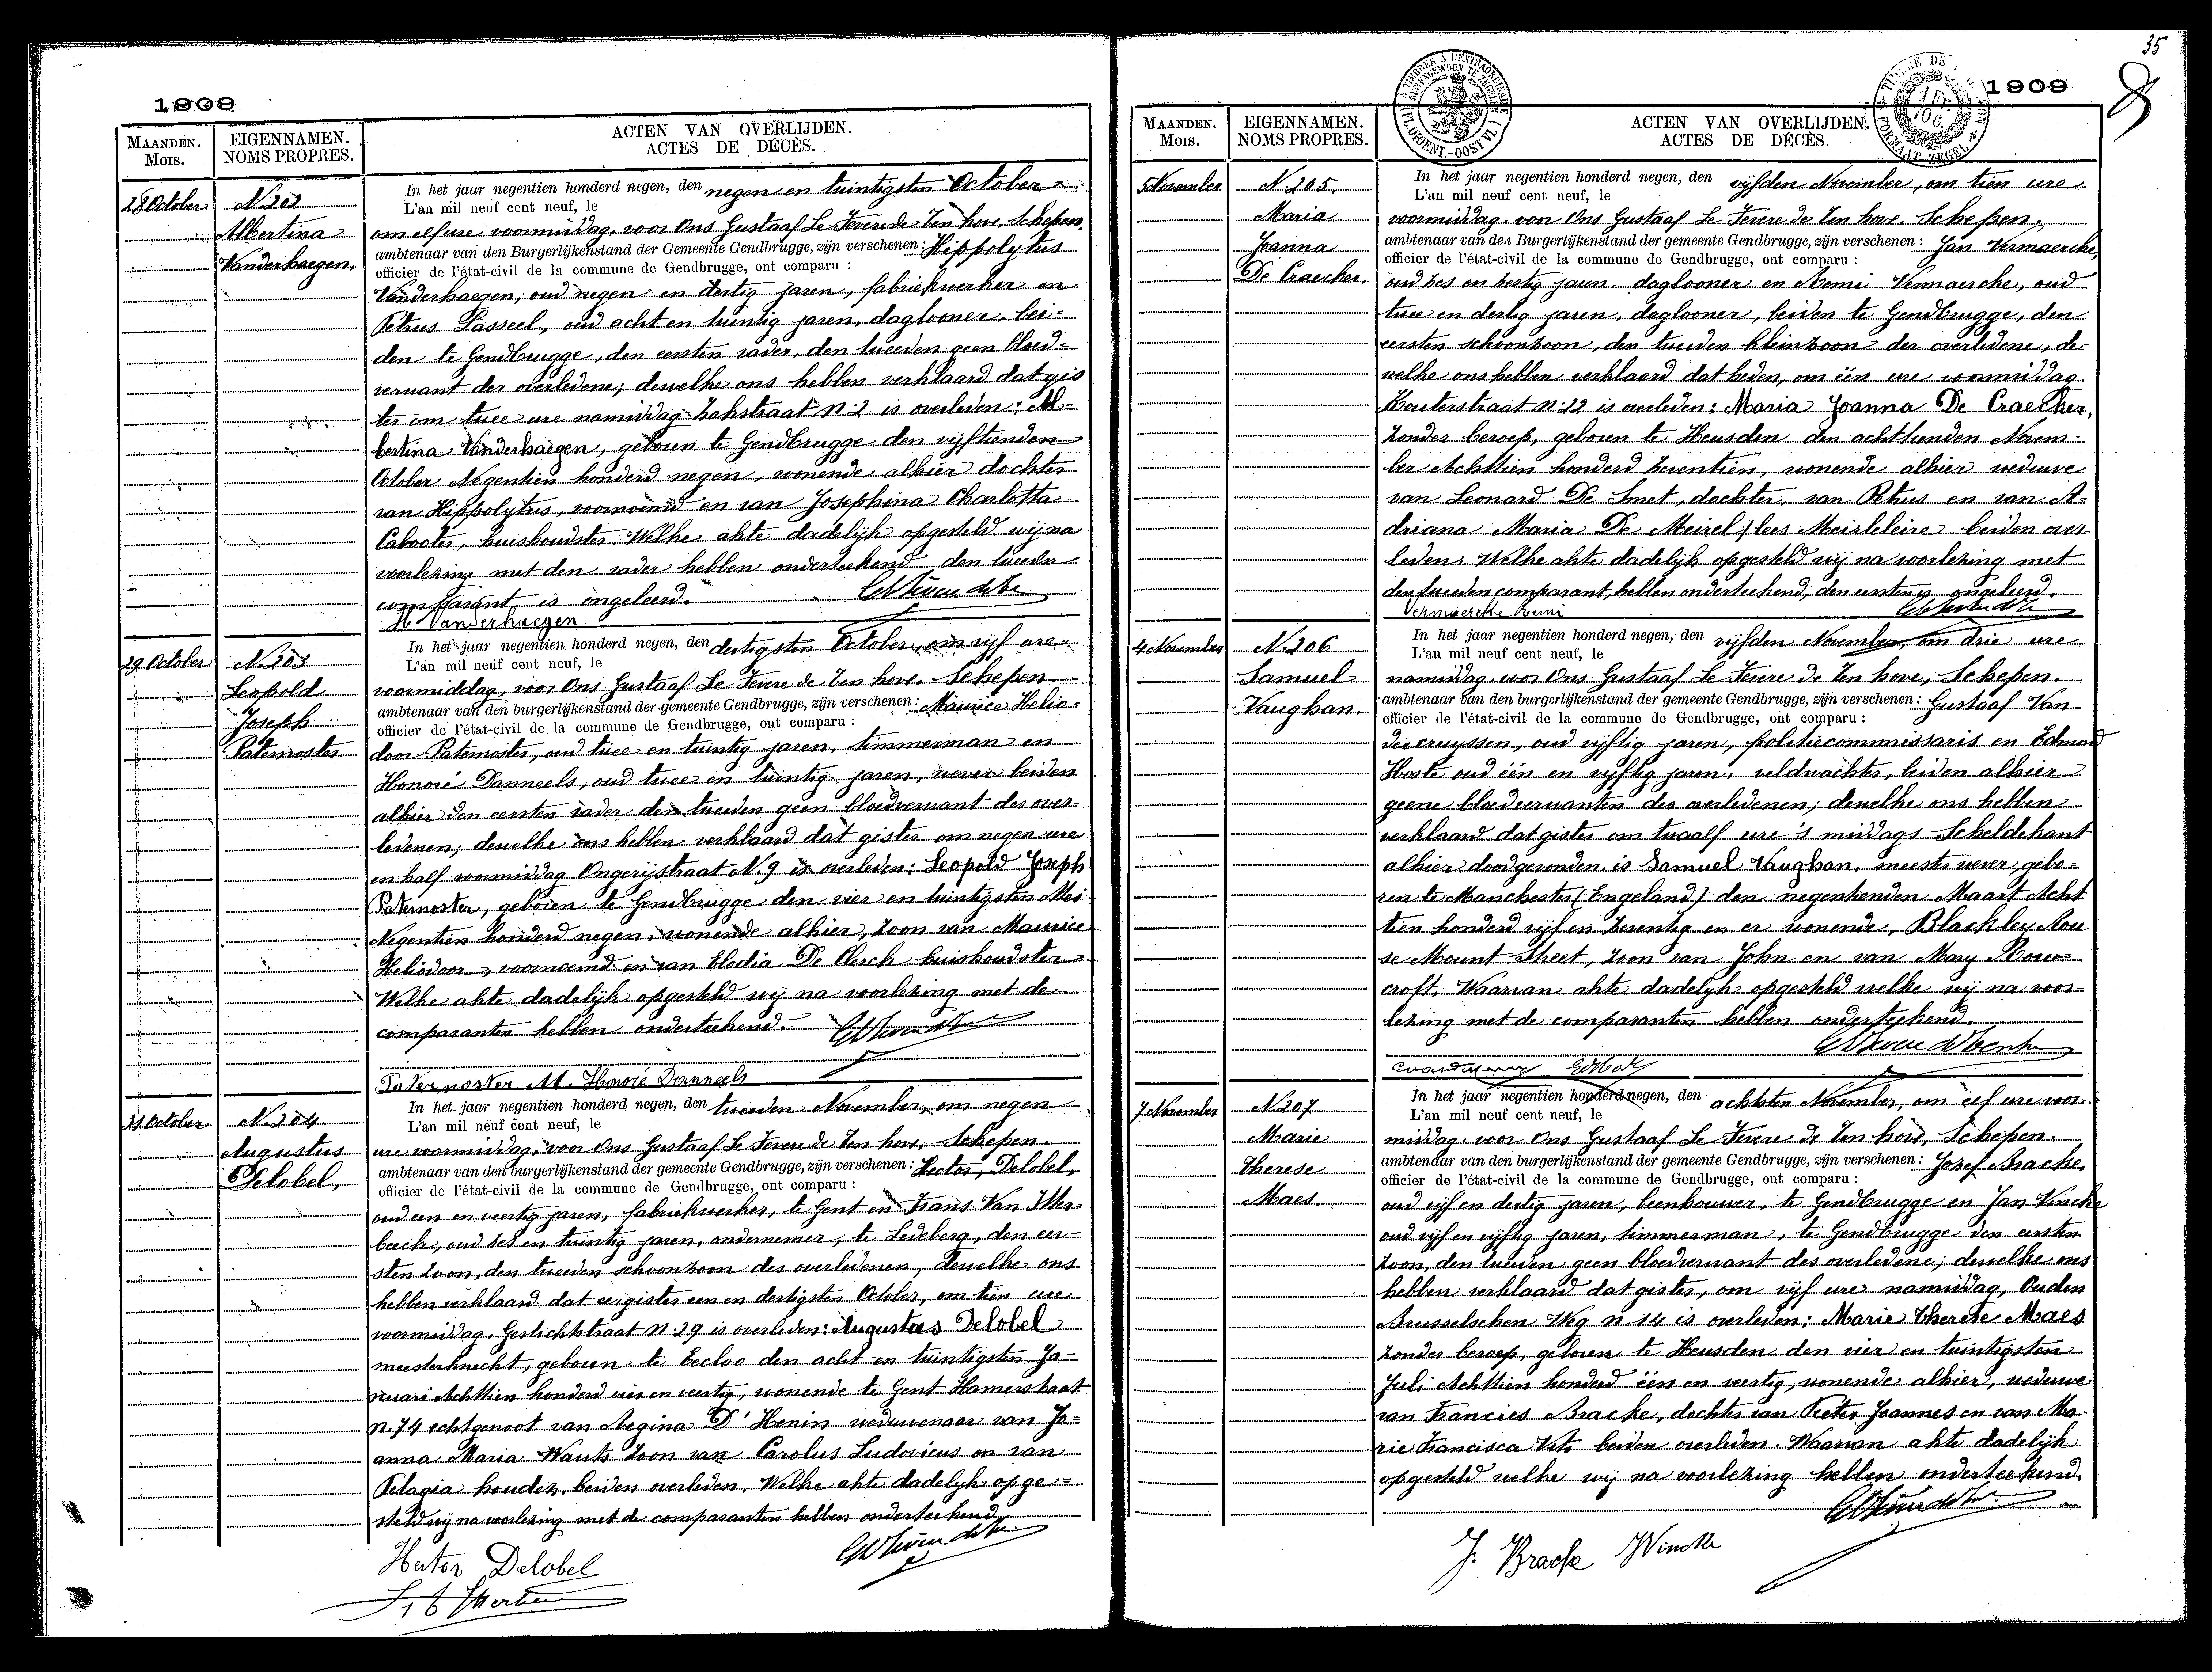 1909
MAANDEN.
MOIS.
EIGENNAMEN.
NOMS PROPRES.
ACTEN VAN OVERLIJDEN.
ACTES DE DÉCÈS.
28 October
N. 202
Albertina
Vanderhaegen,
In het jaar negentien honderd negen, den negen en twintigsten October
L'an mil neuf cent neuf, le
om elf ure voormiddag, voor Ons Gustaaf Le Fevere de Ten hove, Schepen,
ambtenaar van den Burgerlijkenstand der Gemeente Gendbrugge, zijn verschenen: Hippolytus
officier de l'état-civil de la commune de Gendbrugge, ont comparu :
Vanderhaegen, oud negen en dertig jaren, fabriekwerker en
Petrus Lasseel, oud acht en twintig jaren, daglooner, bei-
den te Gendbrugge, den eersten vader, den tweeden geen bloed-
verwant der overledene; dewelke ons hebben verklaard dat gis
ter om twee ure namiddag Zakstraat N. 2 is overleden: Al-
bertina Vanderhaegen, geboren te Gendbrugge den vijftienden
October Negentien honderd negen, wonende alhier dochter
van Hippolytus, voornoemd en van Josephina Charlotta
Cabooter, huishoudster. Welke akte dadelijk opgesteld wij na
voorlezing met den vader hebben onderteekend den tweeden
comparant is ongeleerd.
H Vanderhaegen.
29 October
N. 203
Leopold
Joseph
Paternoster
In het jaar negentien honderd negen, den dertigsten October, om vijf ure
L'an mil neuf cent neuf, le
voormiddag, voor Ons Gustaaf Le Fevere de Ten hove, Schepen.
ambtenaar van den burgerlijkenstand der gemeente Gendbrugge, zijn verschenen: Maurice Helio-
officier de l'état-civil de la commune de Gendbrugge, ont comparu :
door Paternoster, oud twee en twintig jaren, timmerman en
Honoré Danneels, oud twee en twintig jaren, wever beiden
alhier den eersten vader den tweeden geen bloedverwant des over-
ledenen; dewelke ons hebben verklaard dat gister om negen ure
en half voormiddag Ongerijstraat N. 9 is overleden: Leopold Joseph
Paternoster, geboren te Gendbrugge den vier en twintigsten Mei
Negentien honderd negen, wonende alhier, zoon van Maurice
Heliodoor, voornoemd en van Elodia De Clerck huishoudster
Welke akte dadelijk opgesteld wij na voorlezing met de
comparanten hebben onderteekend.
Paternoster M. Honoré Danneels
31 October
N. 204
Augustus
Delobel,
In het jaar negentien honderd negen, den tweeden November, om negen
L'an mil neuf cent neuf, le
ure voormiddag, voor Ons Gustaaf Le Fevere de Ten hove, Schepen.
ambtenaar van den burgerlijkenstand der gemeente Gendbrugge, zijn verschenen: Hector Delobel,
officier de l'état-civil de la commune de Gendbrugge, ont comparu :
oud een en veertig jaren, fabriekwerker, te Gent en Frans Van Itter-
beeck, oud zes en twintig jaren, ondernemer, te Ledeberg, den eer-
sten zoon, den tweeden schoonzoon des overledenen, dewelke ons
hebben verklaard dat eergister een en dertigsten October, om tien ure
voormiddag, Gestichtstraat N. 29 is overleden: Augustus Delobel
meesterknecht, geboren te Eecloo den acht en twintigsten Ja-
nuari Achttien honderd vier en veertig, wonende te Gent Hamerstraat
N. 74 echtgenoot van Regina D'Henin weduwenaar van Jo-
anna Maria Wauts zoon van Carolus Ludovicus en van
Pelagia beiden overleden. Welke akte dadelijk opge-
steld wij na voorlezing met de comparanten hebben onderteekend
Hector Delobel
35
1909
MAANDEN.
MOIS.
EIGENNAMEN.
NOMS PROPRES.
ACTEN VAN OVERLIJDEN.
ACTES DE DÉCÈS.
5 November
N. 205.
Maria
Joanna
De Craecker,
In het jaar negentien honderd negen, den vijfden November, om tien ure
L'an mil neuf cent neuf, le
voormiddag, voor Ons Gustaaf Le Fevere de Ten hove, Schepen.
ambtenaar van den Burgerlijkenstand der gemeente Gendbrugge, zijn verschenen: Jan Vermaercke,
officier de l'état-civil de la commune de Gendbrugge, ont comparu :
oud zes en zestig jaren, daglooner en Remi Vermaercke, oud
twee en dertig jaren, daglooner, beiden te Gendbrugge, den
eersten schoonzoon, den tweeden kleinzoon der overledene, de-
welke ons hebben verklaard dat heden, om één ure voormiddag
Kouterstraat N. 22 is overleden: Maria Joanna De Craecker,
zonder beroep, geboren te Heusden den achttienden Novem-
ber Achttien honderd zeventien, wonende alhier weduwe
van Leonard De Smet, dochter van Petrus en van A-
driana Maria De Meirel / lees Meirleleire beiden over-
leden. Welke akte dadelijk opgesteld wij na voorlezing met
den tweeden comparant, hebben onderteekend, den eersten is ongeleerd.
Vermaercke Remi
4 November
N. 206
Samuel
Vaughan.
In het jaar negentien honderd negen, den vijfden November, om drie ure
L'an mil neuf cent neuf, le
namiddag, voor Ons Gustaaf Le Fevere de Ten hove, Schepen.
ambtenaar van den burgerlijkenstand der gemeente Gendbrugge, zijn verschenen: Gustaaf Van
officier de l'état-civil de la commune de Gendbrugge, ont comparu :
dercruyssen, oud vijftig jaren, politiecommissaris en Edmond
Hoste oud één en vijftig jaren, veldwachter, beiden alhier
geene bloedverwanten des overledenen; dewelke ons hebben
verklaard dat gister om twaalf ure 's middags Scheldekant
alhier doodgevonden is Samuel Vaughan, meester wever, gebo-
ren te Manchester (Engeland) den negentienden Maart Acht
tien honderd vijf en zeventig en er wonende, Blackley Hou
se Mount Street, zoon van John en van Mary Row-
croft. Waarvan akte dadelijk opgesteld welke wij na voor-
lezing met de comparanten hebben onderteekend.
7 November
N. 207
Marie
Therese
Maes.
In het jaar negentien honderd negen, den achtsten November, om elf ure voor-
L'an mil neuf cent neuf, le
middag, voor Ons Gustaaf Le Fevere de Ten hove, Schepen.
ambtenaar van den burgerlijkenstand der gemeente Gendbrugge, zijn verschenen: Jozef Bracke,
officier de l'état-civil de la commune de Gendbrugge, ont comparu :
oud vijf en dertig jaren, beenhouwer, te Gendbrugge en Jan Vincke
oud vijf en vijftig jaren, timmerman, te Gendbrugge den eersten
zoon, den tweeden geen bloedverwant des overledene; dewelke ons
hebben verklaard dat gister, om vijf ure namiddag, Ouden
Brusselschen Weg N. 14 is overleden: Marie Therese Maes
zonder beroep, geboren te Heusden den vier en twintigsten
Juli Achttien honderd één en veertig, wonende alhier, weduwe
van Francies Bracke, dochter van Pieter Joannes en van Ma-
rie Francisca Vits beiden overleden. Waarvan akte dadelijk
opgesteld welke wij na voorlezing hebben onderteekend.
J. Bracke JVincke